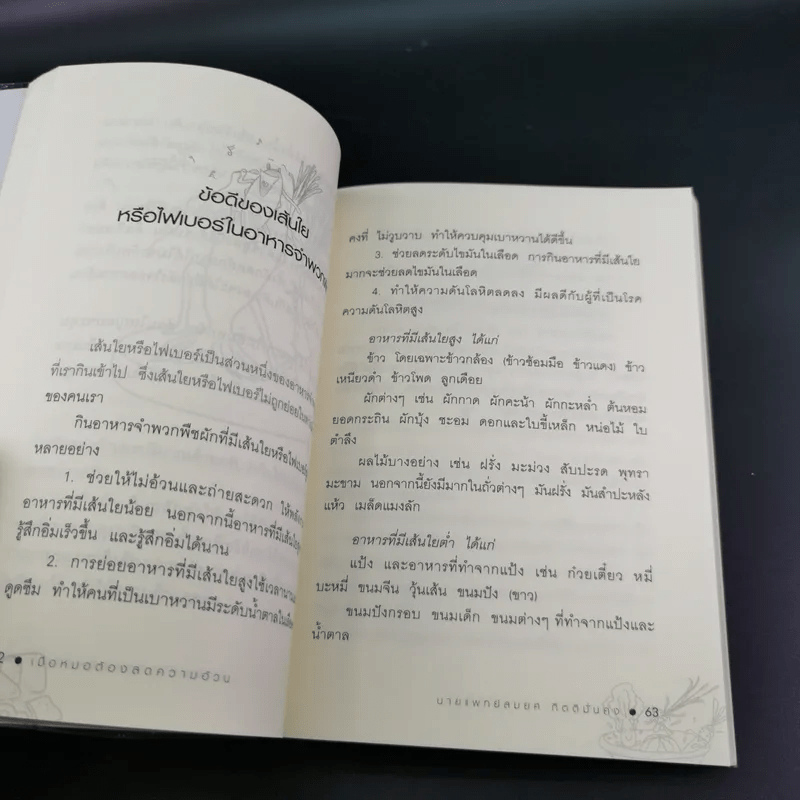 ข้อดีของเส้นใย
หรือไฟเบอร์ในอาหารจำพวก
เส้นใยหรือไฟเบอร์เป็นส่วนหนึ่งของอาหาร
ที่เรากินเข้าไป ซึ่งเส้นใยหรือไฟเบอร์ไม่ถูกย่อย
ของคนเรา
กินอาหารจำพวกพืชผักที่มีเส้นใยหรือไฟเบอร์
หลายอย่าง
1. ช่วยให้ไม่อ้วนและถ่ายสะดวก
อาหารที่มีเส้นใยน้อย นอกจากนี้อาหารที่มีเส้นใย
รู้สึกอิ่มเร็วขึ้น และรู้สึกอิ่มได้นาน
2. การย่อยอาหารที่มีเส้นใยสูงใช้เวลานาน
ดูดซึม ทำให้คนที่เป็นเบาหวานมีระดับน้ำตาลใน
2 • เมื่อหมอต้องลดความอ้วน
คงที่ ไม่วูบวาบ ทำให้ควบคุมเบาหวานได้ดีขึ้น
3. ช่วยลดระดับไขมันในเลือด การกินอาหารที่มีเส้นใย
มากจะช่วยลดไขมันในเลือด
4. ทำให้ความดันโลหิตลดลง มีผลดีกับผู้ที่เป็นโรค
ความดันโลหิตสูง
อาหารที่มีเส้นใยสูง ได้แก่
ข้าว โดยเฉพาะข้าวกล้อง (ข้าวซ้อมมือ ข้าวแดง) ข้าว
เหนียวดำ ข้าวโพด ลูกเดือย
ผักต่างๆ เช่น ผักกาด ผักคะน้า ผักกะหล่ำ ต้นหอม
ยอดกระถิน ผักบุ้ง ชะอม ดอกและใบขี้เหล็ก หน่อไม้ ใบ
ตำลึง
ผลไม้บางอย่าง เช่น ฝรั่ง มะม่วง สับปะรด พุทรา
มะขาม นอกจากนี้ยังมีมากในถั่วต่างๆ มันฝรั่ง มันสำปะหลัง
แห้ว เมล็ดแมงลัก
อาหารที่มีเส้นใยต่ำ ได้แก่
แป้ง และอาหารที่ทำจากแป้ง เช่น ก๋วยเตี๋ยว หมี่
บะหมี่ ขนมจีน วุ้นเส้น ขนมปัง (ขาว)
ขนมปังกรอบ ขนมเด็ก ขนมต่างๆ ที่ทำจากแป้งและ
น้ำตาล
นายแพทย์สมยศ กิตติมั่นคง • 63